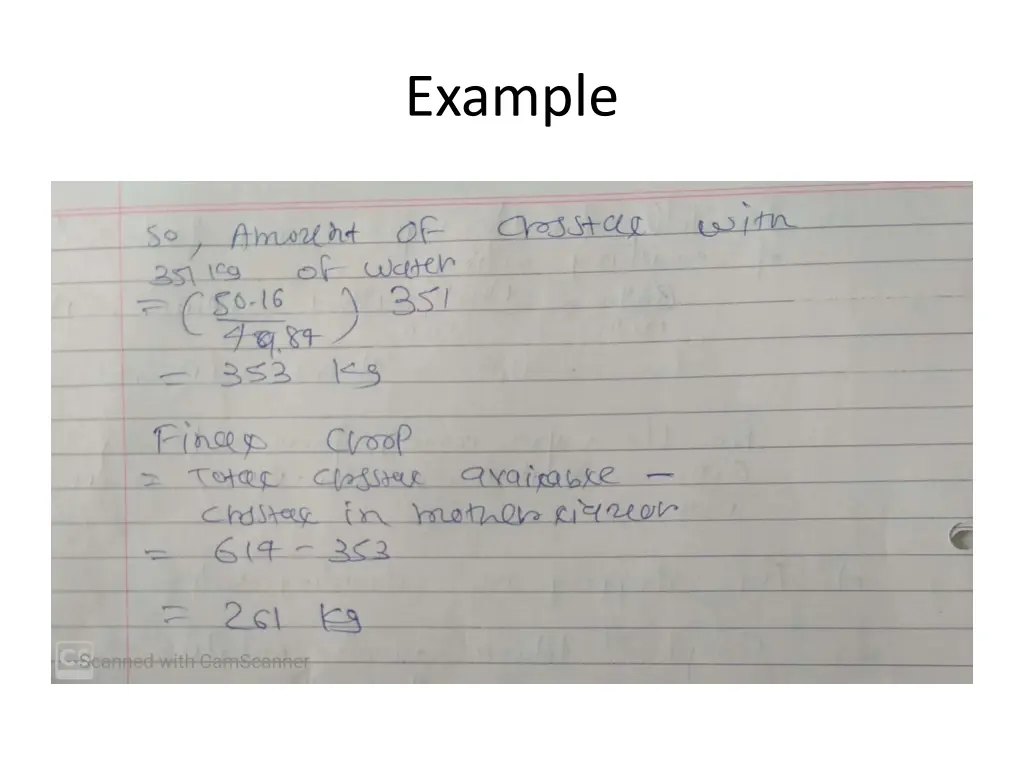 Example
So, Amount of Crosstal with
351 kg of water
= (50.16 / 49.84) 351
= 353 kg
Final Crop
= Total crosstal available -
crosstal in mother liquor
= 614 - 353
= 261 kg
CS Scanned with CamScanner